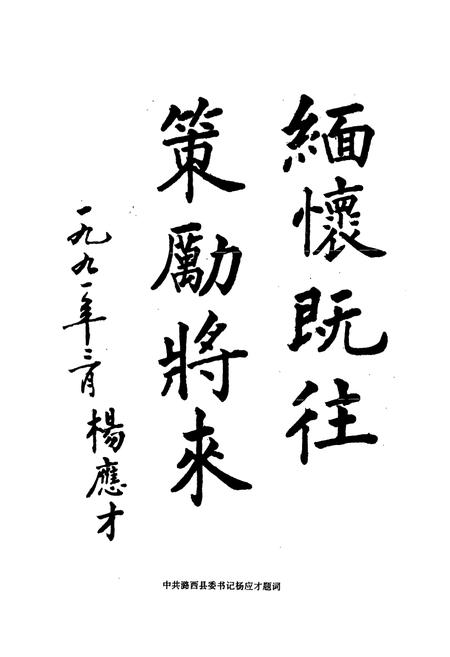 緬懷既往
策勵將來
一九九一年三月
楊應才
中共潞西县委书记杨应才题词